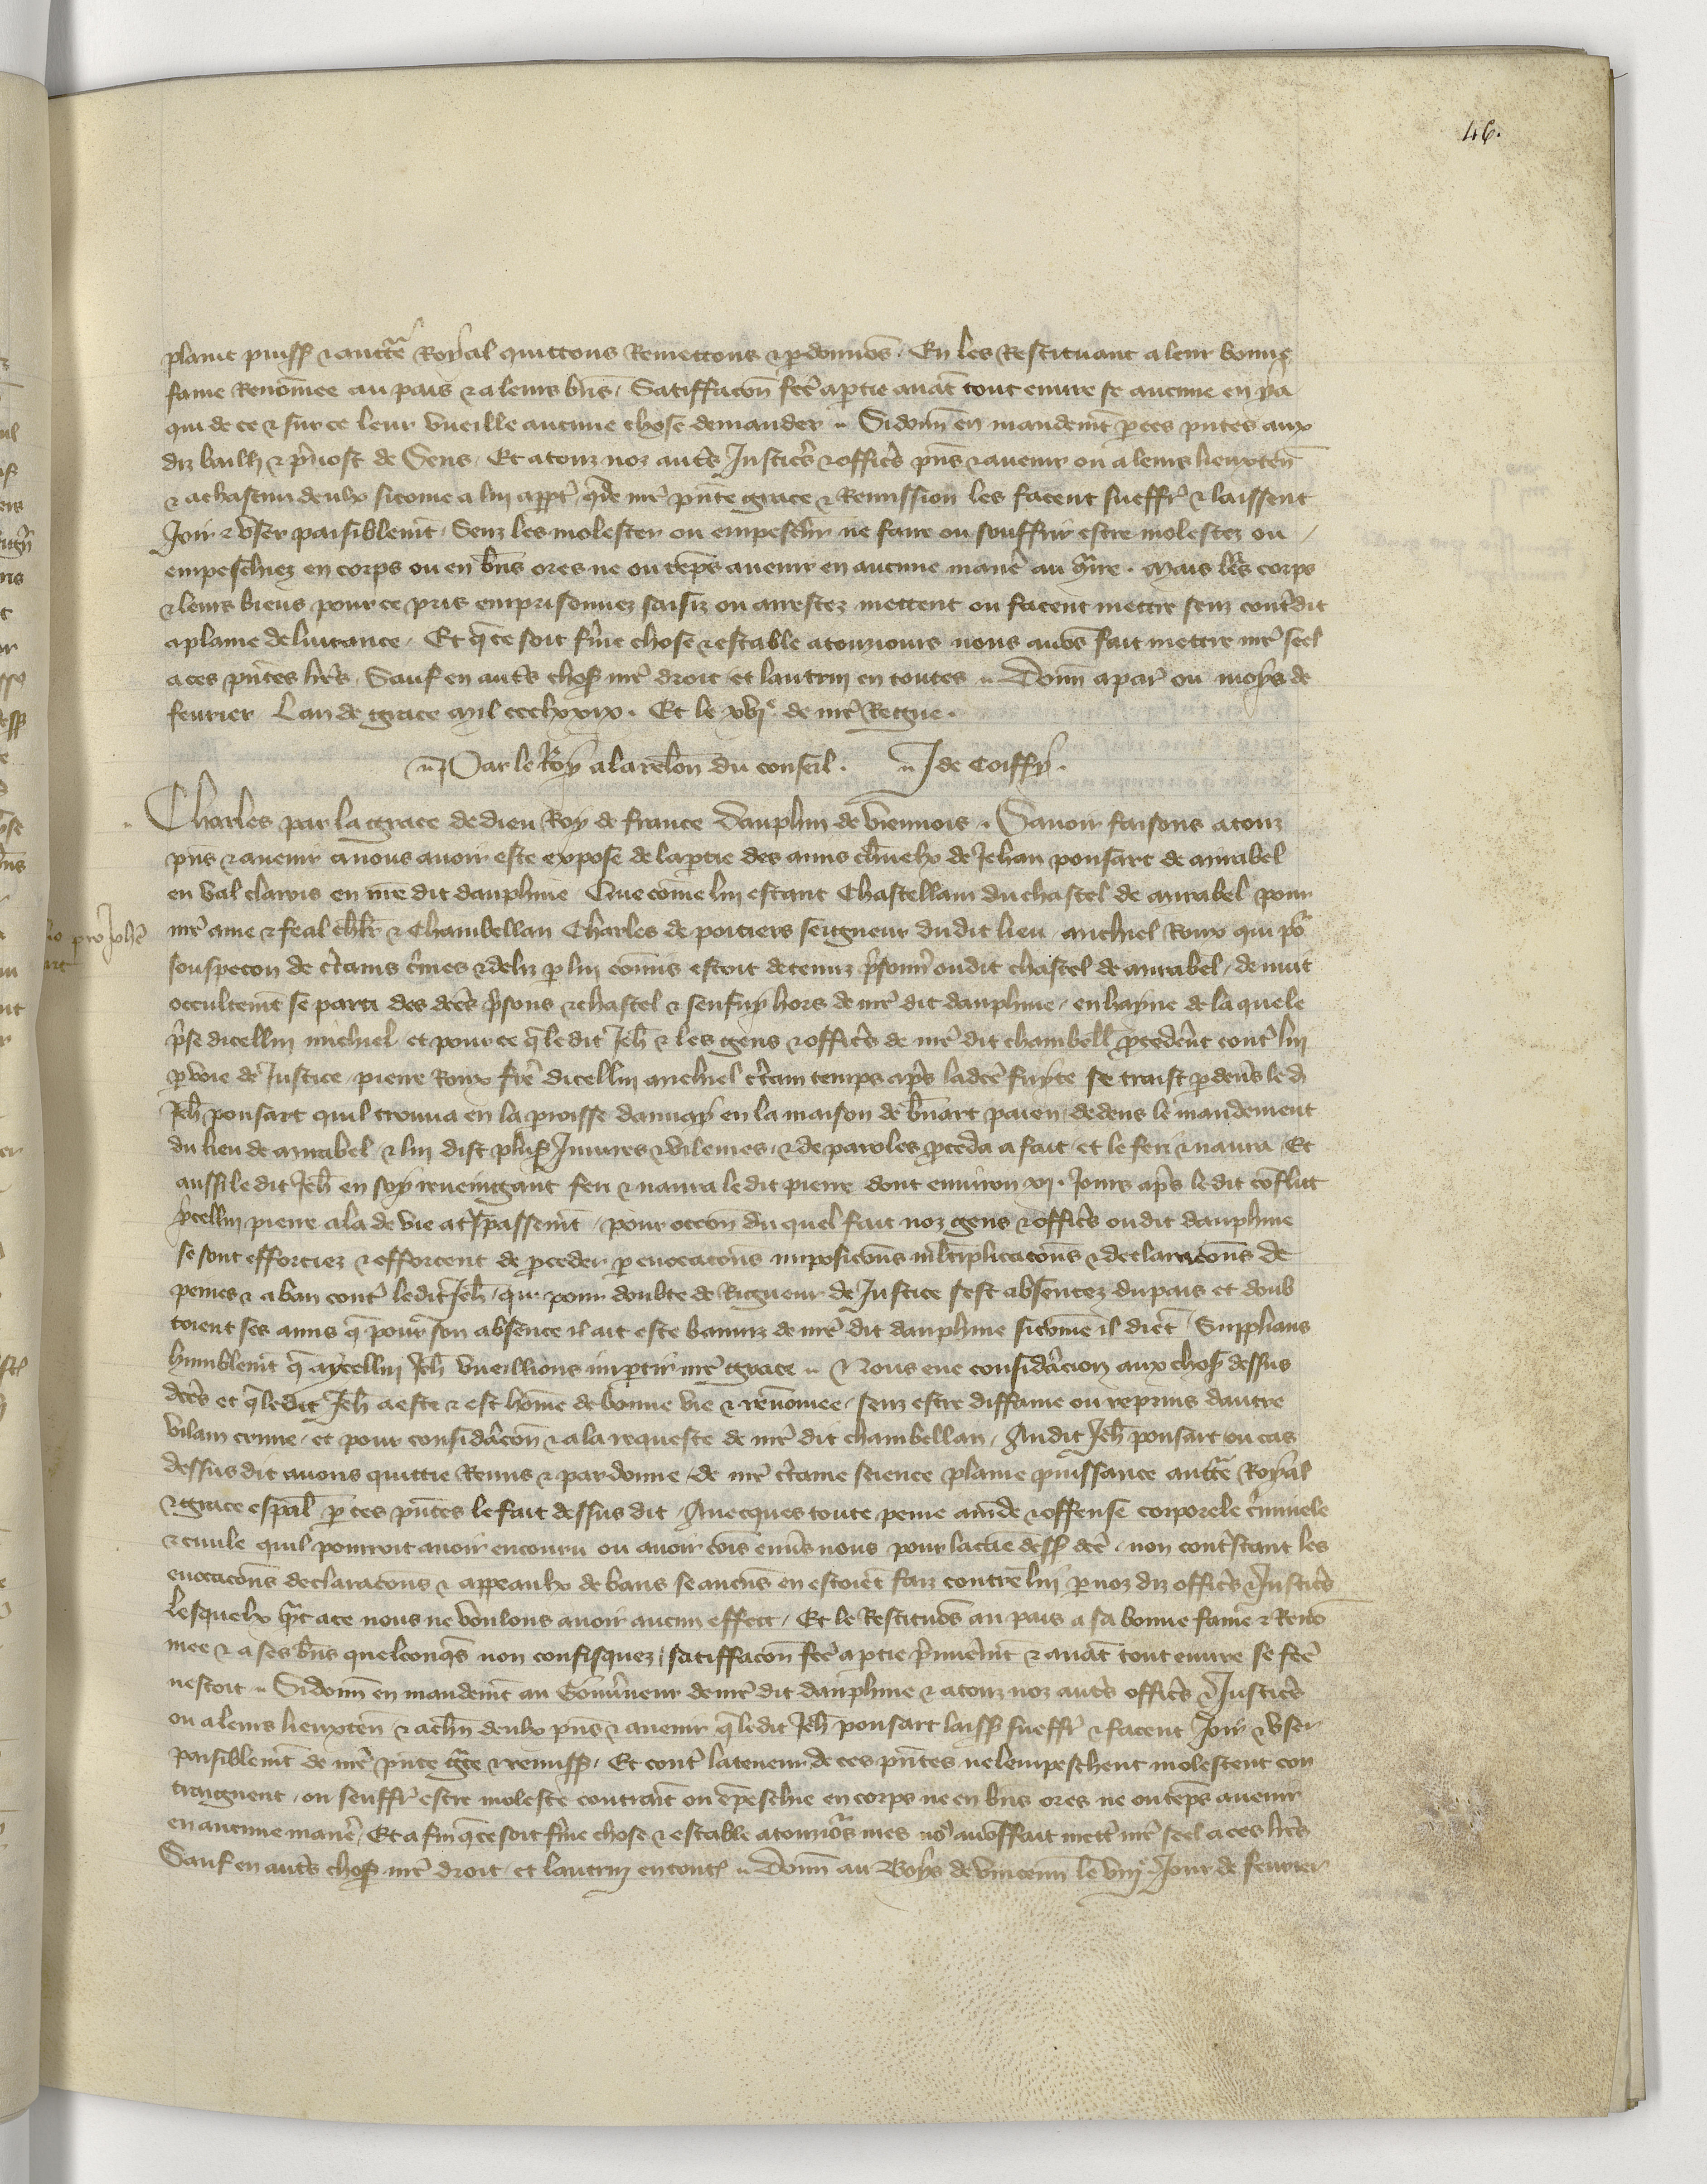 46.
plaine puiss & auctē Royal quittons Remettons & pdonnōs. En les Restituant a leur bonne
fame Renōmee au pais & a leurs bñs. Satiffacōn fcē a ptie auāt tout euure se aucune en y a
qui de ce & sur ce leur vueille aucune chose demander. Si donn en mandemt p ces pntes aux
diz bailli & pruost de Sens. Et a touz noz autrs Justicrs & officrs pns & auenir ou a leurs lieuxten
& a chascun deulx sicome a lui apptr que de nre pnte grace & Remission les facent sueffr & laissent
Joir & vser paisiblemt. Senz les molester ou empeschr ne faire ou souffrir estre molestez ou
empeschiez en corps ou en bñs ores ne ou tēps auenir en aucune manre au contraire. Mais lrs corps
& leurs biens pour ce pris emprisonnez saisiz ou arrestez mettent ou facent mettre senz contrdit
a plaine deliurance. Et q ce soit frme chose & estable a tousiours nous auōs fait mettre nre seel
a ces pntes lrēs. Sauf en autrs chos nre droit et lautrui en toutes. Donn a par ou moys de
feurier Lan de grace mil ccclxxix. Et le xvie de nre Regne.
Par le Roy a la relōn du conseil. J de Coiffy.
Charles par la grace de dieu Roy de france Dauphin de viennois. Sauoir faisons a touz
pns & auenir a nous auoir este expose de la ptie des amis charnelx de Jehan ponsart de mirabel
en val clarois en nre dit dauphine Que come lui estant Chastellain du chastel de mirabel pour
nre ame & feal chlr & Chambellan Charles de poitiers seigneur dudit lieu michiel Roux qui pr
souspecon de crtains crimes & deliz p lui comis estoit detenuz prsonnr oudit chastel de mirabel, de nuit
occultemt se parti des dctes prsons & chastel & senfuy hors de nre dit dauphine, en hayne de la quele
prse dicellui michiel et pour ce q le dit Jeh & les gens & officrs de nre dit chambell pcedernt contr lui
p voie de Justice, pierre Roux frere dicellui michiel crtain temps aprs la dcte fuyte se traist p deurs le d
Jeh ponsart quil trouua en la proisse dannay en la maison de bnart paien, dedens le mandement
du lieu de mirabel & lui dist plus Iniures & vilenies, & de paroles pceda a fait, et le feri & naura, Et
aussi le dit Jeh en soy reuenigant feri & naura le dit pierre dont enuiron vi. Jours aprs le dit coflict
ycellui pierre ala de vie a trspassemt, pour occon du quel fait noz gens & officrs oudit dauphine
se sont efforciez & efforcent de pceder p euocacons imposicons mltiplicacons & declaracons de
peines & a ban contr le dit Jeh, qui pour doubte de Rigueur de Justice sest absentez du pais et doub
toient ses amis q pour son absence il ait este baniz de nre dit dauphine sicome il dient Supplians
humblemt q a ycellui Jeh vueillions imptir nre grace. Nous eue considracion aux chos dessus
dctes et q le dit Jeh a este & est home de bonne vie & renomee, senz estre diffame ou reprins dautre
vilain crime, et pour considracon & a la requeste de nre dit chambellan, Audit Jeh ponsart ou cas
dessus dit auons quittie Remis & pardonne, de nre crtaine science plaine puissance aucte Royal
& grace espal p ces pntes le fait dessus dit, Auecques toute peine amde & offense corporele criminele
& ciuile quil pourroit auoir encouru ou auoir comis enurs nous pour la cause dess dcte, non contrstant les
euocacons declaracons & appeaulx de bans se aucuns en estoient faiz contre lui p noz diz officrs & Justicrs
lesquelx quant a ce nous ne voulons auoir aucun effect, Et le Restituos au pais a sa bonne fame & Reno
mee & a ses bñs quelconqs non confisquez, satiffacon fcte a ptie prmieremt & auat tout euure se fcte
nestoit. Si donn en mandemt au Gouurneur de nre dit dauphine & a touz noz autrs officrs & Justicrs
ou a leurs lieuxten & a chun deulx pns & auenir q le dit Jeh ponsart laiss sueffr & facent Joir & vser
paisiblemt de nre pnte gce & remiss. Et contr la teneur de ces pntes ne lempeschent molestent con
traignent, ou seuffr estre moleste contraint ou epeschie en corps ne en bñs ores ne ou teps auenir
en aucune manre, Et a fin q ce soit frme chose & estable a tousiors mes no auos fait mettr nre seel a ces lrēs
Sauf en autrs chos nre droit et lautrui en tout. Donn au Boys de vincenn le viije Jour de feurier